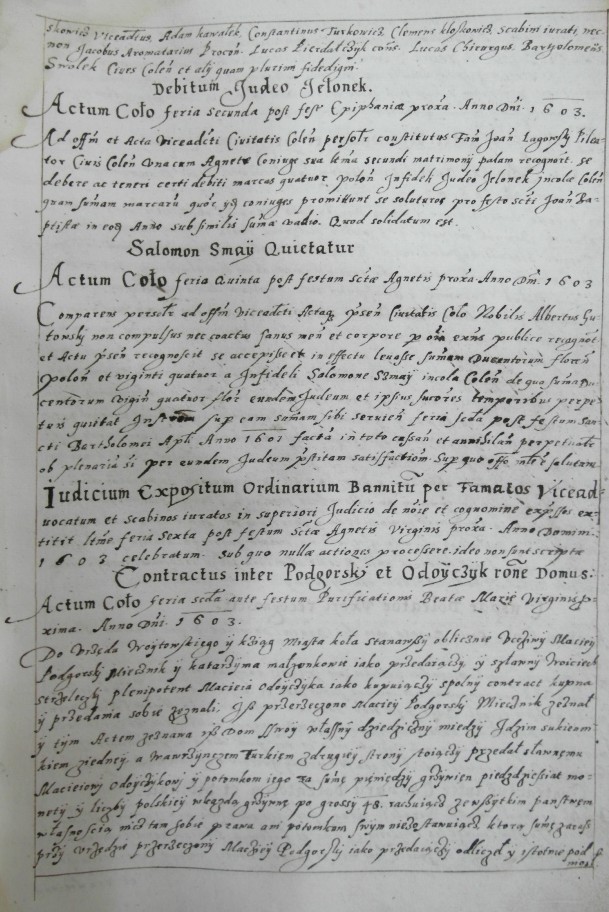 skowicz Viceadtus, Adam kawałek, Constantinus Turkowicz Clemens kloskowicz Scabini iurati, nec
non Jacobus Aromatarius Procon. Lucas Pierdalczyk cons. Lucas Chirurgus. Bartholomeus
Smolek Cives Colen et alÿ quam plurimi fidedigni
Debitum Judeo Jelonek.
Actum Coło feria secunda post fest Epiphaniæ proxa. Anno Dni. 1603.
Ad offm et Acta Viceadcti Civitatis Colen persolr constitutus Fam Joan Lagowsky
tor Civis Colen Vna cum Agnete Coniuge sua secundi matrimonÿ palam recognort. se
debere ac teneri certi debiti marcas quatuor polon Infideli Judeo Jelonek incolæ Colen
quam sumam marcaru quor coniuges promittunt se soluturos pro festo scti Joan Ba-
ptistæ in eod Anno sub similis sumæ vadio. Quod soledatum est.
Salomon Smaÿ Quietatur
Actum Coło feria Quinta post festum sctæ Agnetis proxa. Anno Dni. 1603
Comparens persolr ad offm Viceadcti Actaq Civitatis Colo Nobilis Albertus Gu-
towski non compulsus nec coactus sanus men et corpore publice recognot
et Actu recognoscit se accepisse et in effectu levasse sumam Ducentorum floren
polon et viginti quatuor a Infideli Salomone Szmaÿ incola Colen de qua suma Du-
centorum vigin quatuor flor eundem Judeum et ipsius sucores temporibus perpe-
tuis quitat sup eam sumam sibi servien feria scda post festum san-
cti Bartholomei Apli Anno 1601 facta in toto cassan et annihilan perpetualr
ob plenaria si per eundem Judeum satisfaction. Sup quo offo
Iudicium Expositum Ordinarium Bannitu per Famatos Vicead-
vocatum et scabinos iuratos in superiori Judicio de noie et cognomine exÿssos ex-
titit feria Sexta post festum Sctæ Agnetis Virginis proxa. Anno Domini
1603 celebratum. sub quo nullæ actiones processere. ideo non sunt scriptæ
Contractus inter Podgorski et Odoÿczÿk rone Domus.
Actum Coło feria scda ante festum Purificationis Beatæ Mariæ Virginis p-
xima. Anno Dni. 1603.
Do Vrzedu Woÿtowskiego ÿ kxiąg Miasta koła stanąwszÿ oblicznie Vczciwÿ Macieÿ
Podgorski Miecznik ÿ katarzÿna małzonkowie iako przedaiączÿ, ÿ szlawnÿ Woiciech
strzeleczki plenipotent Macieia Odoÿczÿka iako kupuiączÿ spolnÿ contract kupna
ÿ przedania sobie zeznali. Isz przerzeczono Macieÿ Podgorskÿ Miecznik zeznał
ÿ tÿm Actem zeznawa isz Dom swoÿ własnÿ dziedzicznÿ miedzÿ Jdzim sukienni-
kiem ziedneÿ, a Wawrzÿnczem Turkiem zdrugieÿ stronÿ stoiączÿ przedał sławnemu
Macieiowi Odoÿczÿkowi ÿ potomkom iego za sumę pieniędzÿ grzÿwien piedzdziesiat mo-
netÿ ÿ liczbÿ polskieÿ wkazdą grzÿwnę po groszÿ 48. rachuiącz ze wszÿtkim panstwem
własnoscią nicz tam sobie prawa ani potomkom swÿm niezostawuiącz. ktorą sumę zaras
przÿ Vrzędzie przerzeczonÿ Macieÿ Podgorskÿ iako przedaiączÿ odliczeł y istotnie pod-